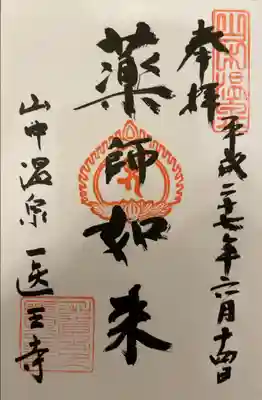 奉拝
平成二十七年六月十四日
薬師如来
山中温泉
医王寺